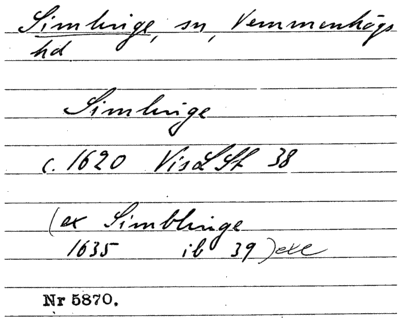 Simlinge, sn, Vemmenhögs
hd
Simlinge
c. 1620 VisLSt 38
(ex Simblinge
1635 ib 39) exc
Nr 5870.